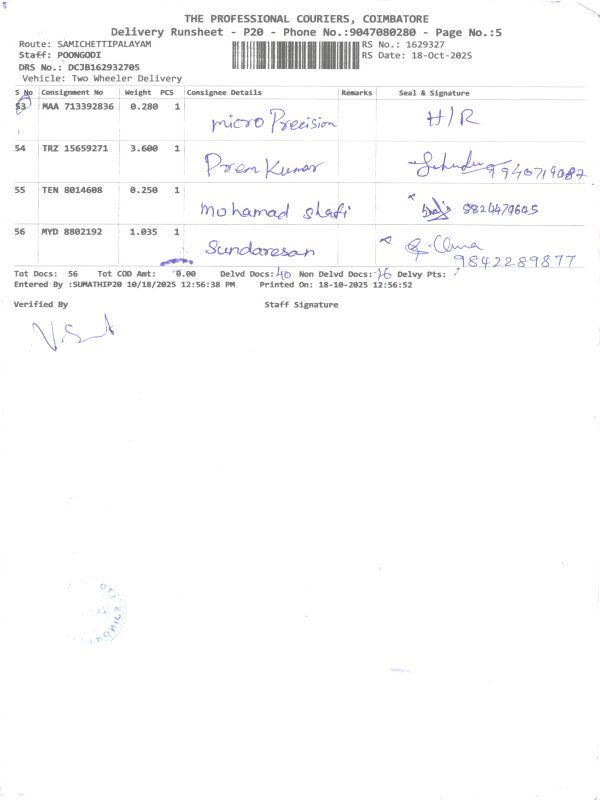 THE PROFESSIONAL COURIERS, COIMBATORE
Delivery Runsheet - P20 - Phone No.:9047080280 - Page No.:5
Route: SAMICHETTIPALAYAM RS No.: 1629327
Staff: POONGODI RS Date: 18-Oct-2025
DRS No.: DCJB162932705
Vehicle: Two Wheeler Delivery
S No Consignment No Weight PCS Consignee Details Remarks Seal & Signature
53 MAA 713392836 0.280 1 micro Precision H/R
54 TRZ 15659271 3.600 1 Prem Kumar 9940719087
55 TEN 8014608 0.250 1 Mohamad shafi
56 MYD 8802192 1.035 1 Sundaresan
9842289877
Tot Docs: 56 Tot COD Amt: 0.00 Delvd Docs: 40 Non Delvd Docs: 16 Delvy Pts:
Entered By :SUMATHIP20 10/18/2025 12:56:38 PM Printed On: 18-10-2025 12:56:52
Verified By Staff Signature